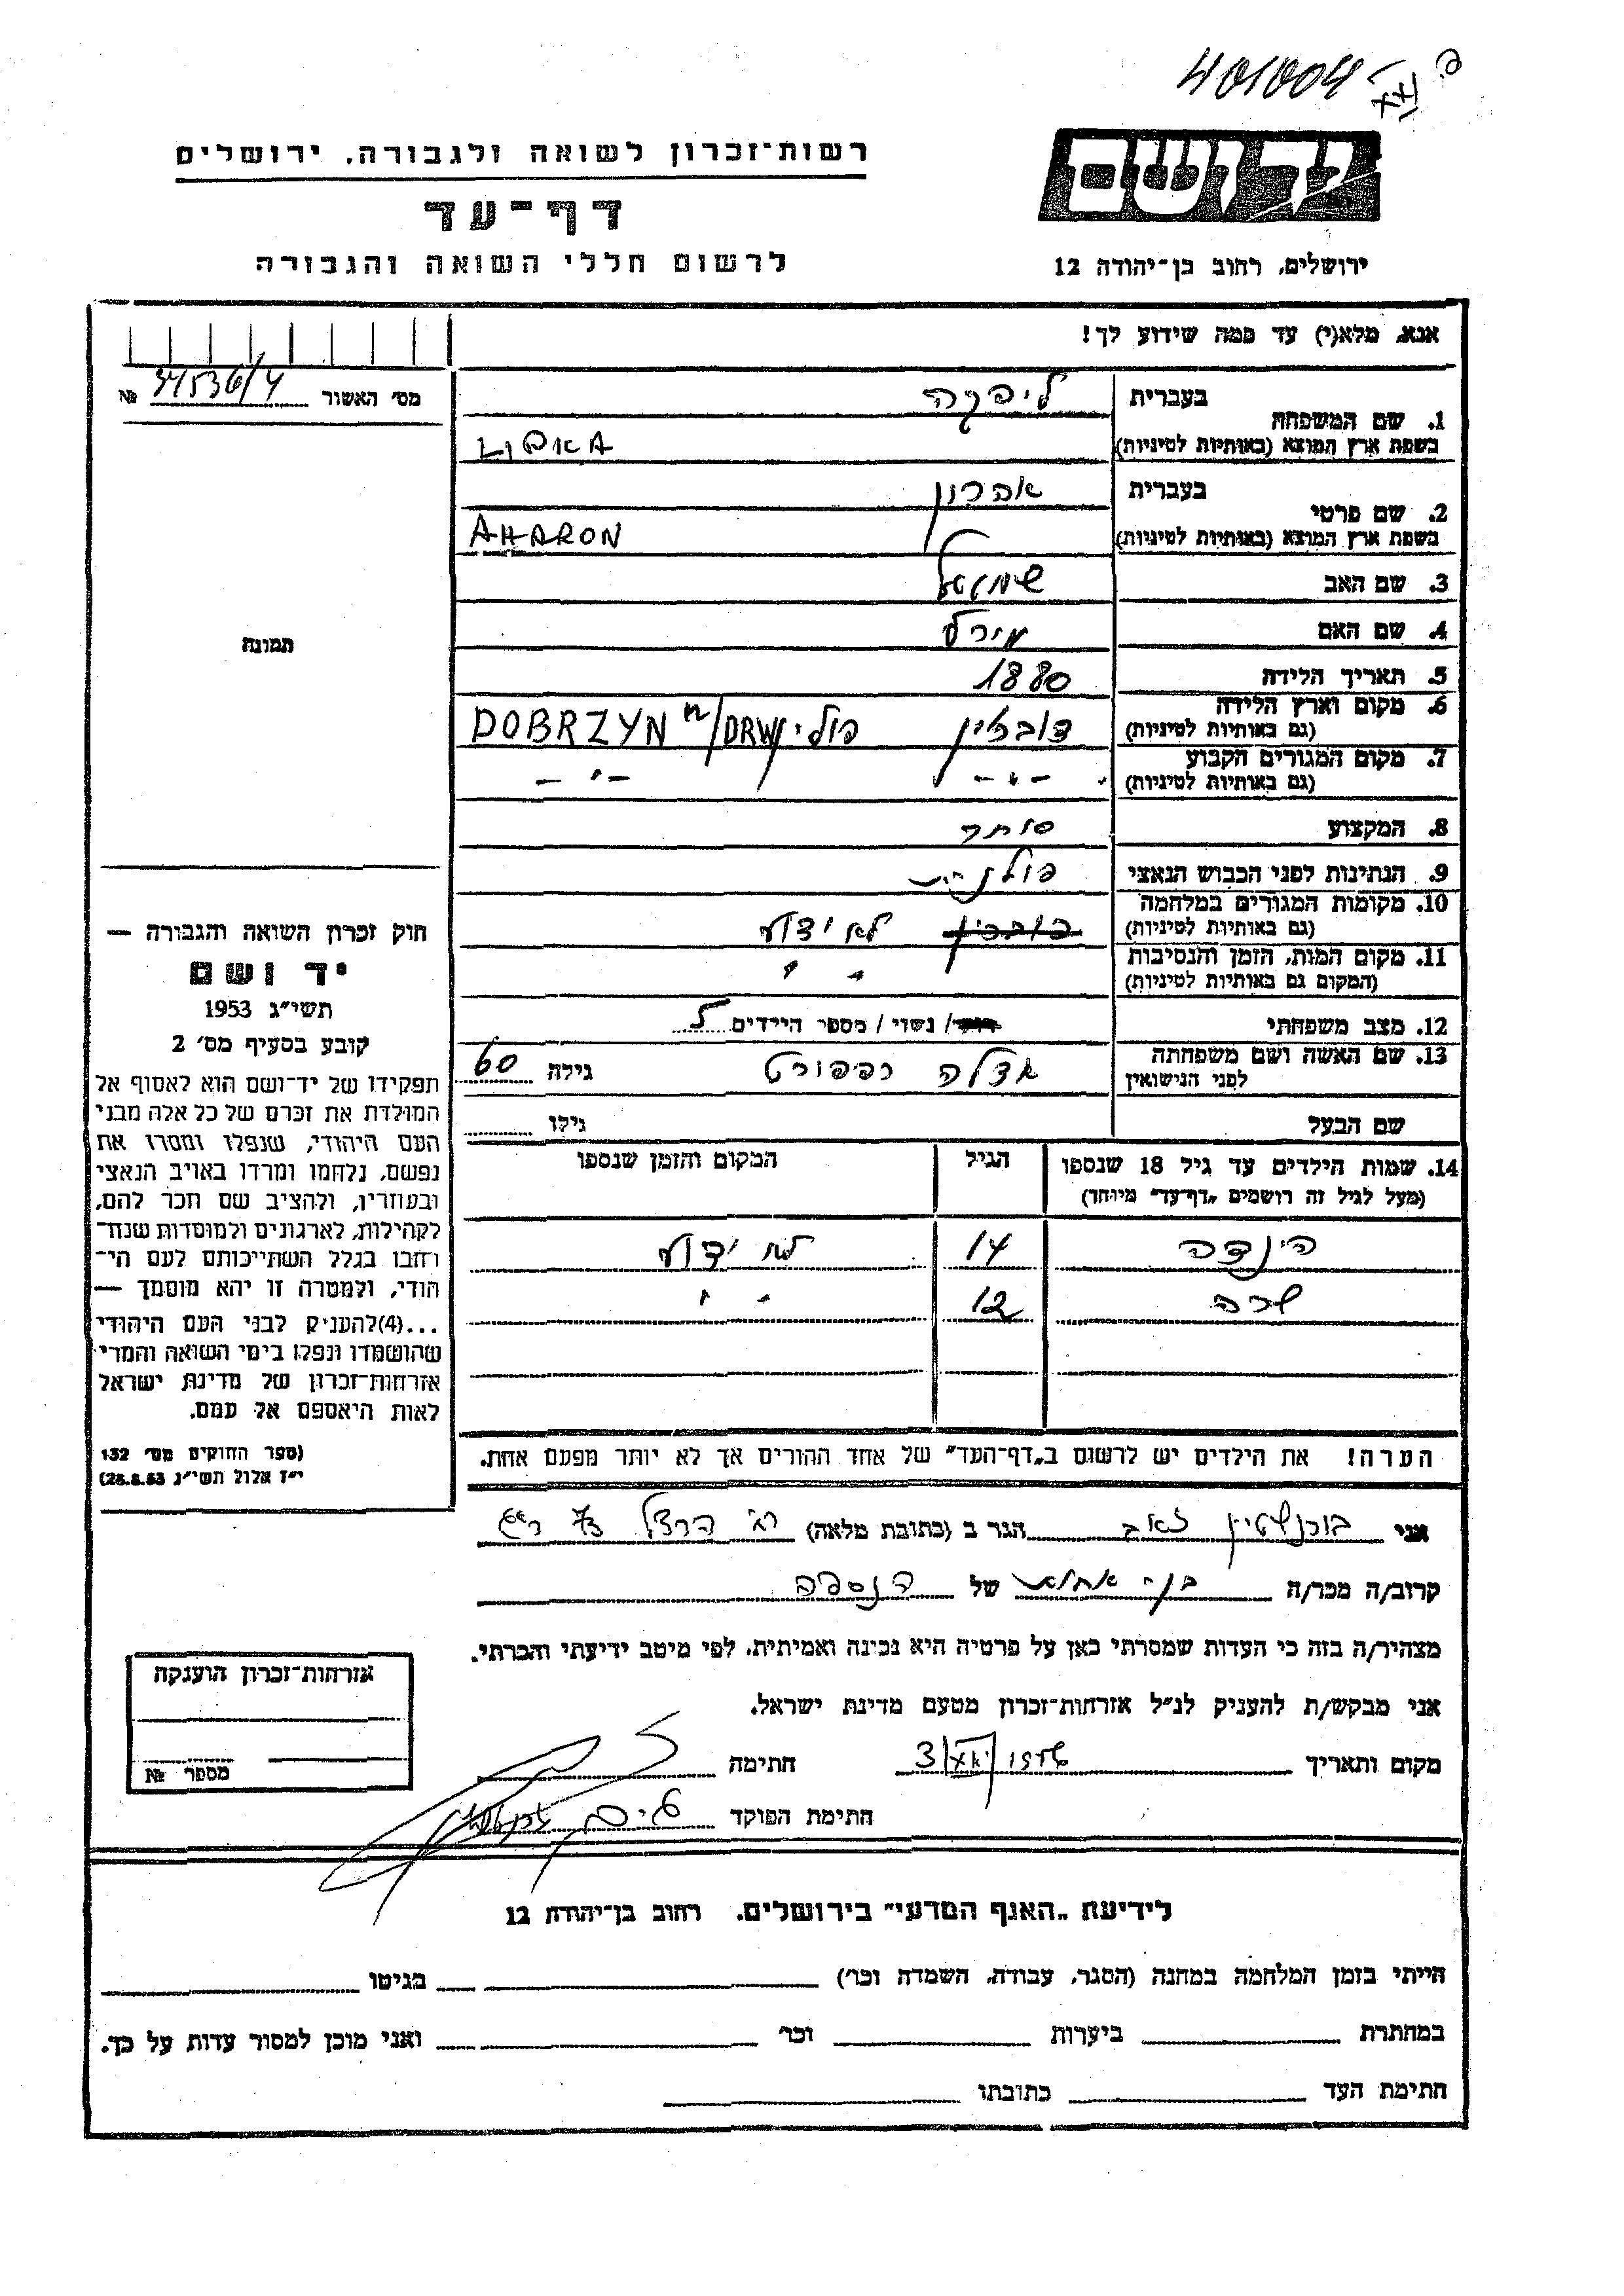 401004
XXI
יד ושם
רשות־זכרון לשואה ולגבורה, ירושלים
דף־עד
ירושלים, רחוב בן־יהודה 12
לרשום חללי השואה והגבורה
אנא, מלא(י) עד כמה שידוע לך!
מס׳ האשור № 34536/4
1. שם המשפחה בעברית ליפקה
בשפת ארץ המוצא (באותיות לטיניות)
2. שם פרטי בעברית אהרון
בשפת ארץ המוצא (באותיות לטיניות) AHARON
3. שם האב שמואל
4. שם האם מירל
תמונה
5. תאריך הלידה 1880
6. מקום וארץ הלידה (גם באותיות לטיניות) דובז׳ין פולי׳ DOBRZYN n/DRW
7. מקום המגורים הקבוע (גם באותיות לטיניות) -"- -"-
8. המקצוע סוחר
9. הנתינות לפני הכבוש הנאצי פולנית
10. מקומות המגורים במלחמה (גם באותיות לטיניות) לא ידוע
11. מקום המות, הזמן והנסיבות (המקום גם באותיות לטיניות) " "
12. מצב משפחתי רווק/ נשוי / מספר הילדים
13. שם האשה ושם משפחתה לפני הנישואין אדלה רפפורט גילה 60
שם הבעל גילו
14. שמות הילדים עד גיל 18 שנספו הגיל המקום והזמן שנספו
(מעל לגיל זה רושמים „דף־עד״ מיוחד)
הינדה 14 לא ידוע
שרה 12 " "
הערה! את הילדים יש לרשום ב„דף־העד״ של אחד ההורים אך לא יותר מפעם אחת.
חוק זכרון השואה והגבורה —
יד ושם
תשי״ג 1953
קובע בסעיף מס׳ 2
תפקידו של יד־ושם הוא לאסוף אל
המולדת את זכרם של כל אלה מבני
העם היהודי, שנפלו ומסרו את
נפשם, נלחמו ומרדו באויב הנאצי
ובעוזריו, ולהציב שם וזכר להם,
לקהילות, לארגונים ולמוסדות שנח־
רחבו בגלל השתייכותם לעם הי־
הודי, ולמטרה זו יהא מוסמך —
...(4)להעניק לבני העם היהודי
שהושמדו ונפלו בימי השואה והמרי
אזרחות־זכרון של מדינת ישראל
לאות היאספם אל עמם.
(ספר החוקים מס׳ 132
י״ז אלול תשי״ג 28.8.53)
אני בורנשטיין זאב הגר ב (כתובת מלאה) רח׳ הרצל
קרוב/ה מכר/ה בן אחות של הנספה
מצהיר/ה בזה כי העדות שמסרתי כאן על פרטיה היא נכונה ואמיתית, לפי מיטב ידיעתי והכרתי.
אני מבקש/ת להעניק לנ״ל אזרחות־זכרון מטעם מדינת ישראל.
מקום ותאריך 3/XI/1956 חתימה
חתימת הפוקד
אזרחות־זכרון הוענקה
מספר №
לידיעת „האגף המדעי״ בירושלים, רחוב בן־יהודה 12
הייתי בזמן המלחמה במחנה (הסגר, עבודה, השמדה וכו׳) בגיטו
במחתרת ביערות וכו׳ ואני מוכן למסור עדות על כך.
חתימת העד כתובתו